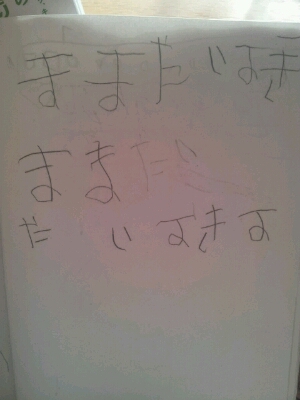 ままだいすき
ままだい
だいすきす